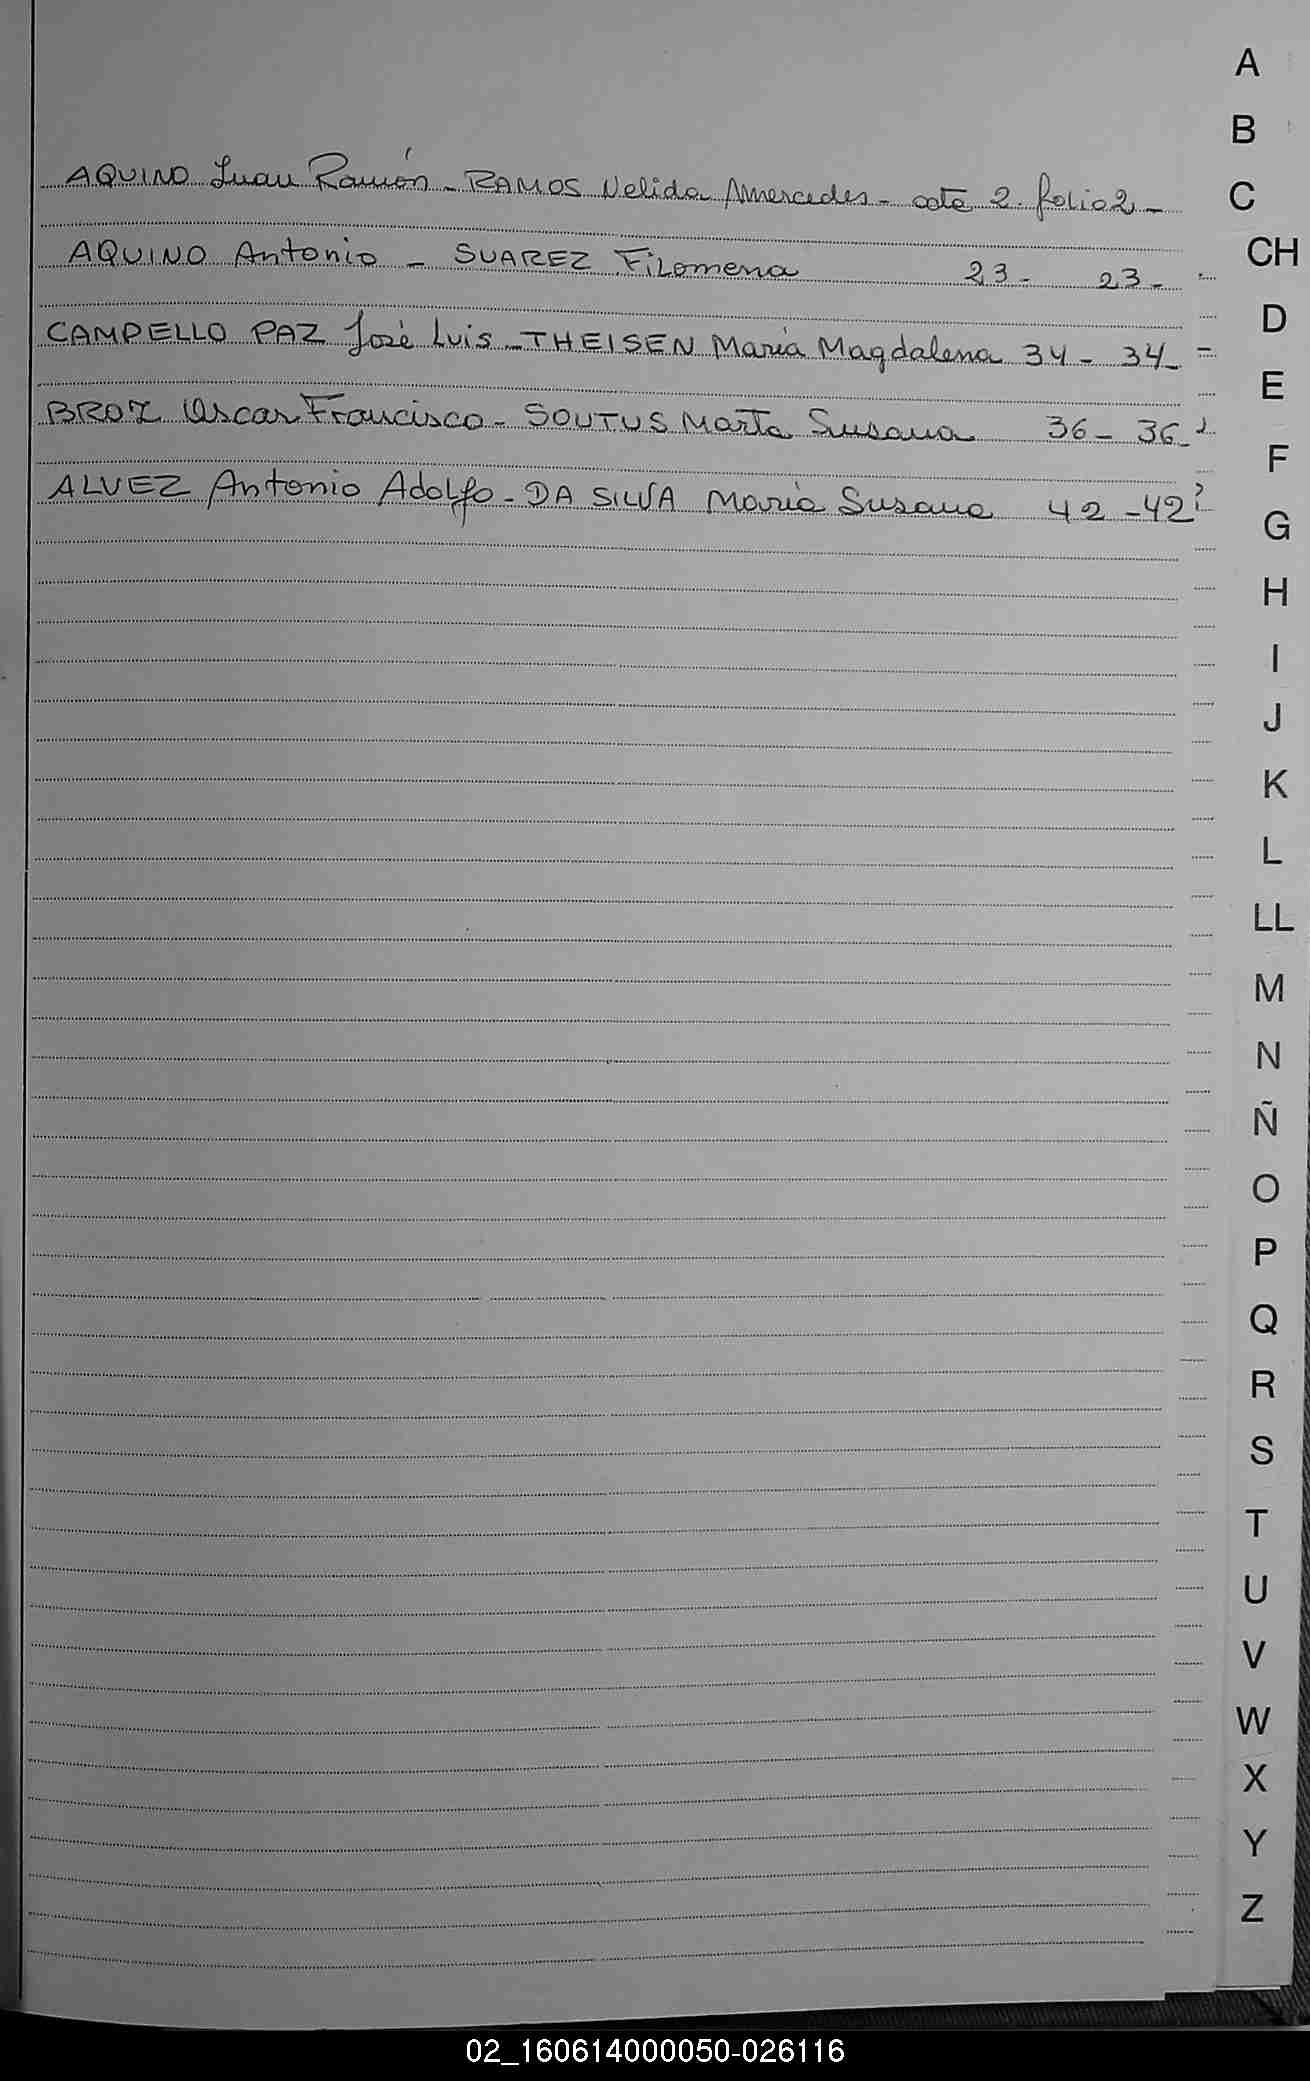 AQUINO Juan Ramón - RAMOS Nelida Mercedes - acta 2. folio 2 -
AQUINO Antonio - SUAREZ Filomena 23 - 23 -
CAMPELLO PAZ José Luis - THEISEN María Magdalena 34 - 34 -
BROZ Oscar Francisco - SOUTUS Marta Susana 36 - 36 -
ALVEZ Antonio Adolfo - DA SILVA María Susana 42 - 42
A
B
C
CH
D
E
F
G
H
I
J
K
L
LL
M
N
Ñ
O
P
Q
R
S
T
U
V
W
X
Y
Z
02_160614000050-026116